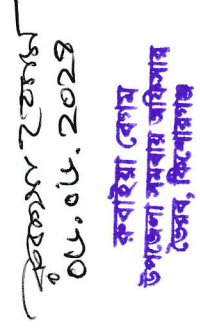 ০৮.০৮.২০২৪
রুবাইয়া বেগম
উপজেলা সমবায় অফিসার
ভৈরব, কিশোরগঞ্জ